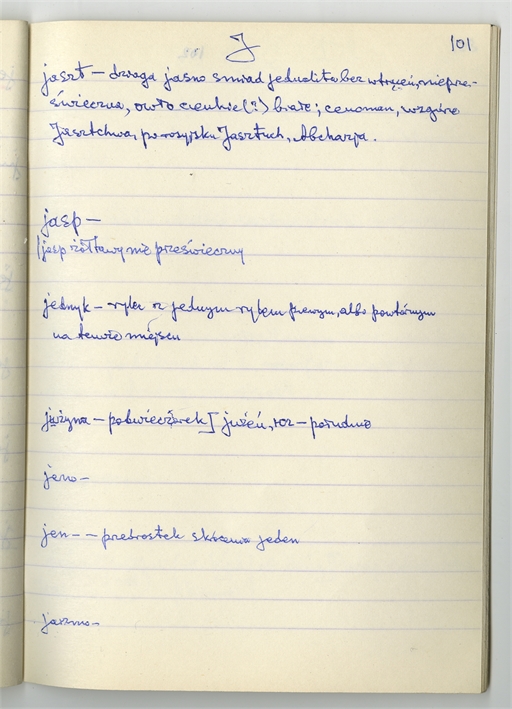 J
101
jaszt – dzaga jasno smiad jednolita bez wtrąceń, nieprze-
świeczna, owto cienkie(?) białe; cenoman, wzgórze
Jasztchwa, po rosyjsku Jasztuch, Abchazja.
jasp –
jasp żółtawy nie prześwieczny
jednyk – rylec z jednym rylcem pewnym, albo powtórnym
na temże miejscu
jużyna – podwieczorek] jużeń, roz – południe
jeno –
jen- – przedrostek skrócenia jeden
jarzmo –